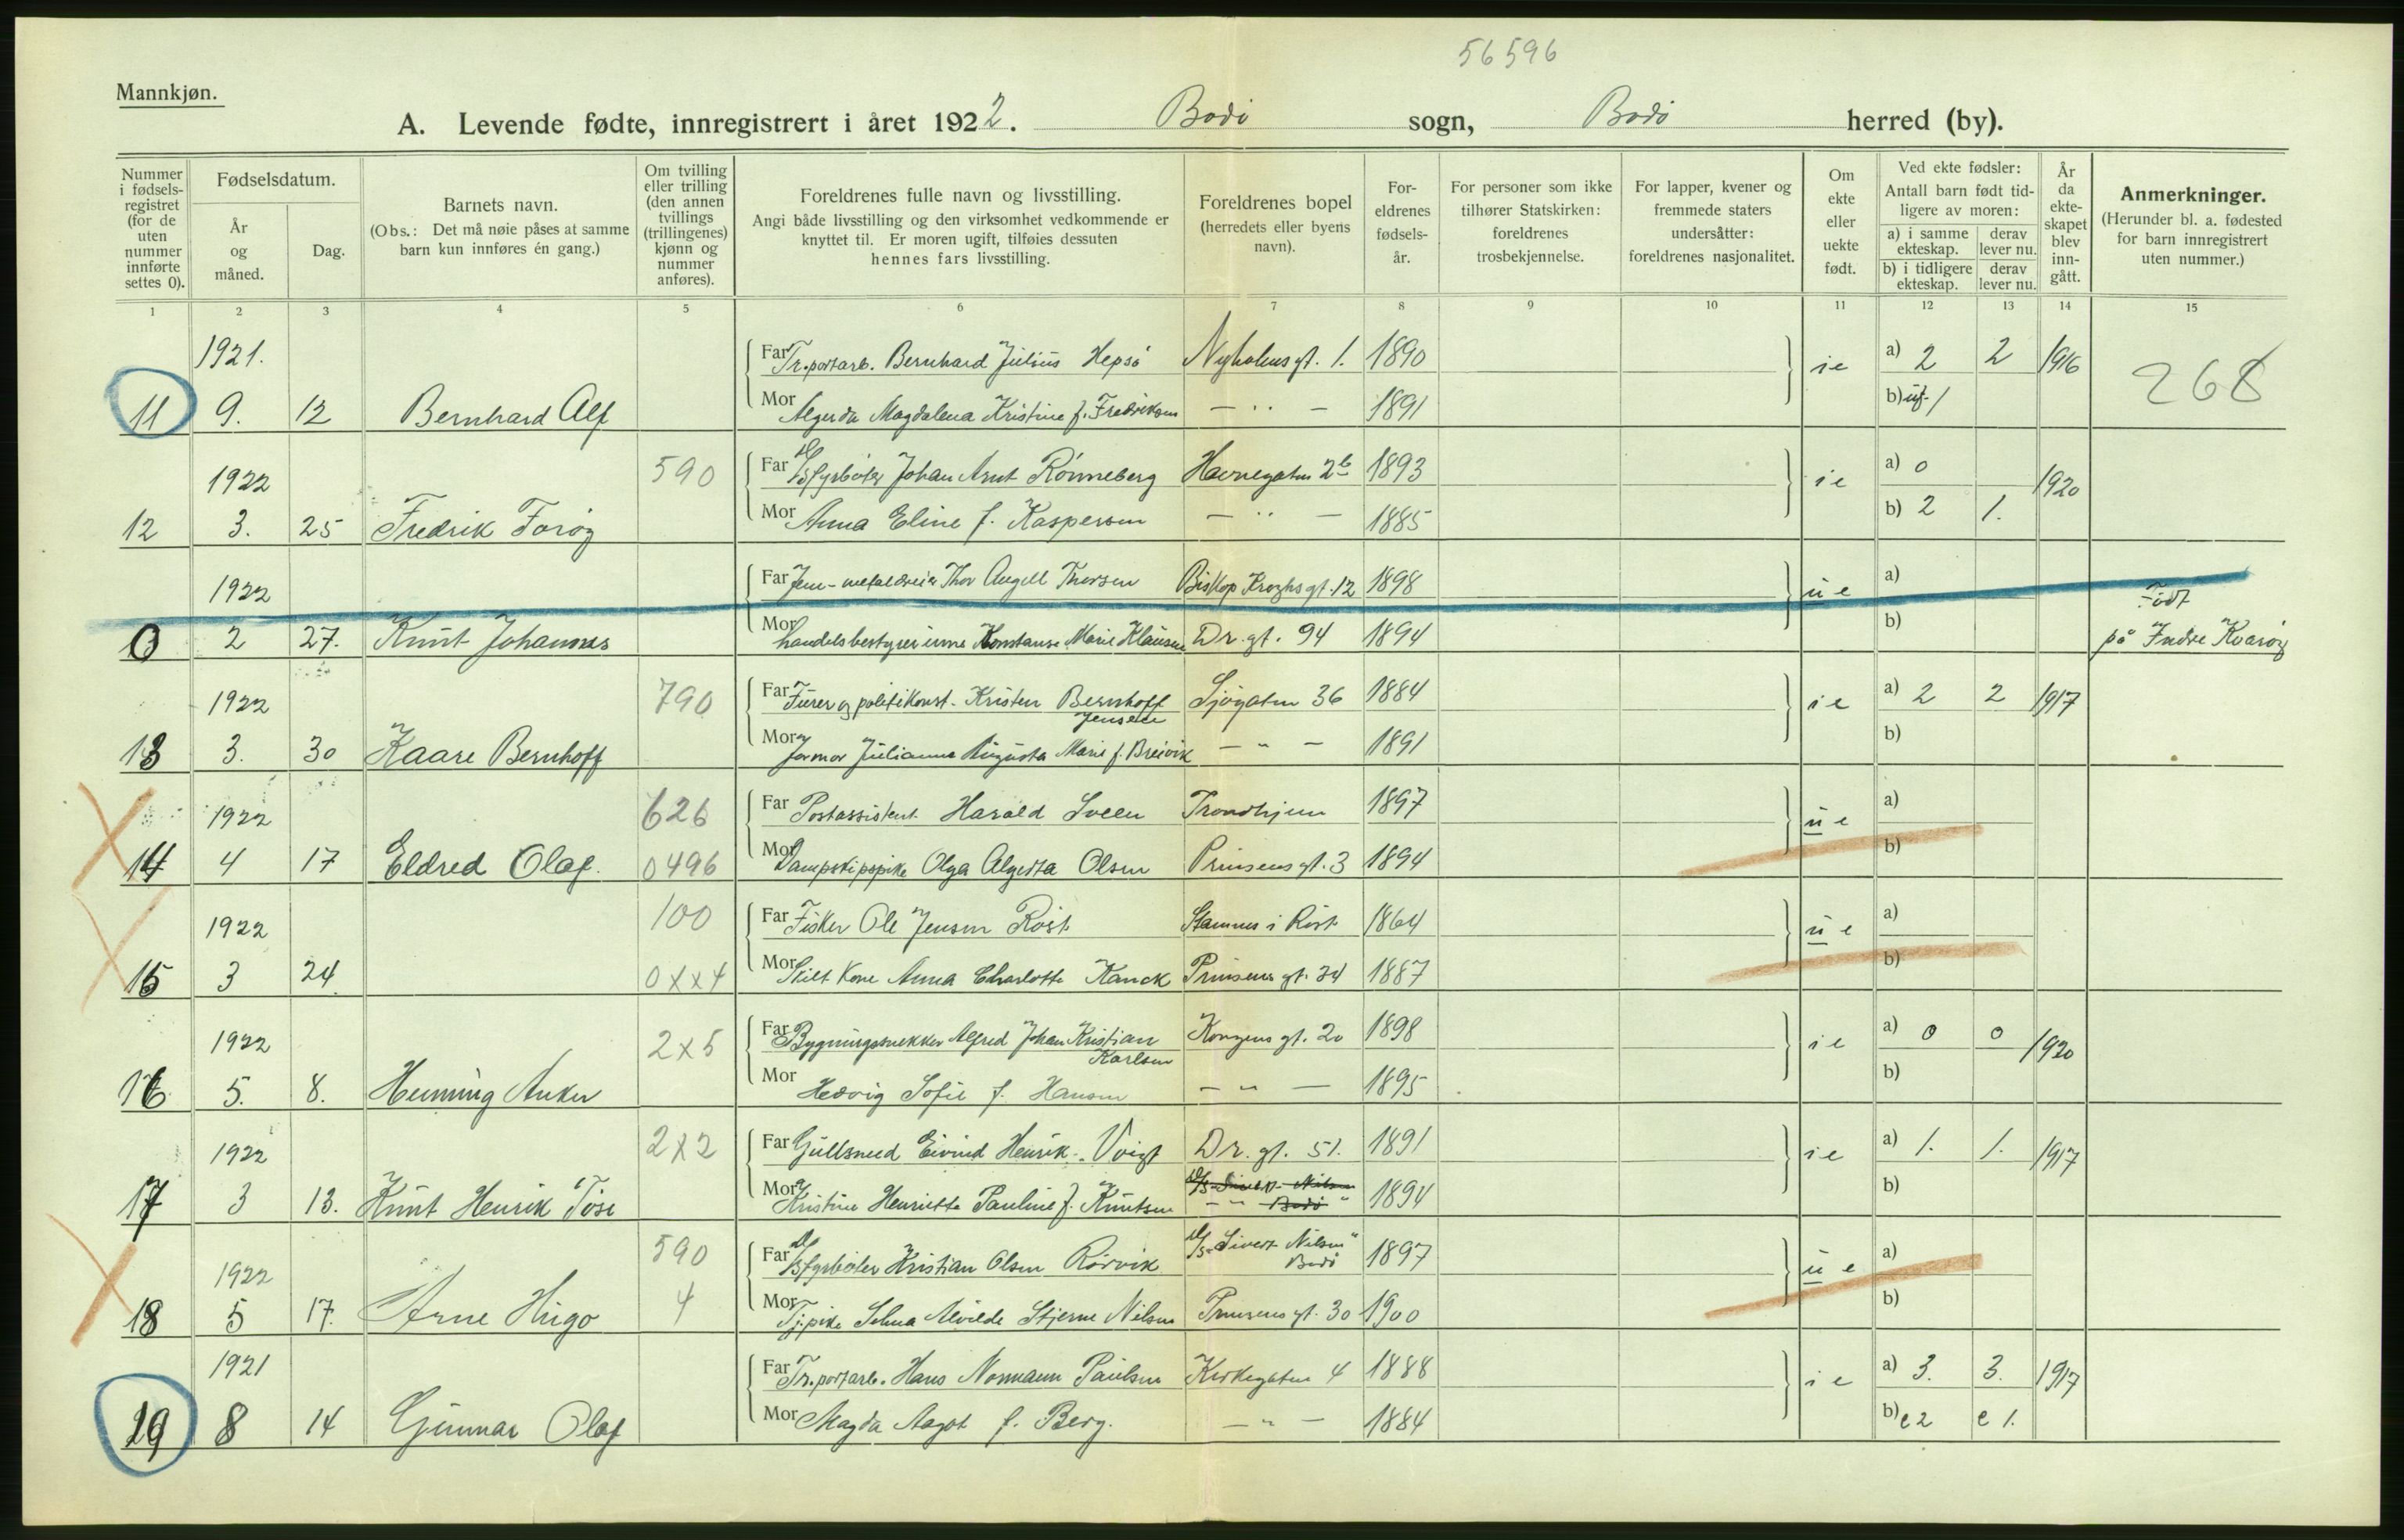 56596
Mannkjøn.
A. Levende fødte, innregistrert i året 1922. Bodö sogn, Bodö herred (by).
Nummer i fødselsregistret (for de uten nummer innførte settes 0).
Fødselsdatum.
År og måned.
Dag.
Barnets navn.
(Obs.: Det må nøie påses at samme barn kun innføres én gang.)
Om tvilling eller trilling (den annen tvillings (trillingenes) kjønn og nummer anføres).
Foreldrenes fulle navn og livsstilling.
Angi både livsstilling og den virksomhet vedkommende er knyttet til. Er moren ugift, tilføies dessuten hennes fars livsstilling.
Foreldrenes bopel
(herredets eller byens navn).
Foreldrenes fødselsår.
For personer som ikke tilhører Statskirken: foreldrenes trosbekjennelse.
For lapper, kvener og fremmede staters undersåtter: foreldrenes nasjonalitet.
Om ekte eller uekte født.
Ved ekte fødsler:
Antall barn født tidligere av moren:
a) i samme ekteskap. derav lever nu.
b) i tidligere ekteskap. derav lever nu.
År da ekteskapet blev inngått.
Anmerkninger.
(Herunder bl. a. fødested for barn innregistrert uten nummer.)
1 2 3 4 5 6 7 8 9 10 11 12 13 14 15
1921. Far Tr.portarb. Bernhard Julius Hepsö Nyholmsgt. 1. 1890 ie a) 2 2 1916 268
11 9. 12 Bernhard Alf Mor Algerda Magdalena Kristine f. Fredriksen — " — 1891 b) uf. 1
1922 590 Far D/S fyrböter Johan Arnt Rönneberg Havnegaten 2b 1893 ie a) 0 1920
12 3. 25 Fredrik Foröy Mor Anna Eline f. Kaspersen — " — 1885 b) 2 1.
1922 Far Jern- metaldreier Thor Angell Thorsen Biskop Kroghs gt. 12 1898 ue a) Födt
0 2 27. Knut Johannes Mor handelsbestyrerinne Konstanse Marie Klausen Dr. gt. 94 1894 b) på Indre Kvaröy
1922 790 Far Furer og politikonst. Kristen Bernhoff Jensen Sjögaten 36 1884 ie a) 2 2 1917
13 3. 30 Kaare Bernhoff Mor Jormor Julianne Augusta Marie f. Breivik — " — 1891 b)
1922 626 Far Postassistent Harald Sveen Trondhjem 1897 ue a)
14 4 17 Eldred Olaf. 0496 Mor Dampskipspike Olga Algerta Olsen Prinsens gt. 3 1894 b)
1922 100 Far Fisker Ole Jensen Röst Stamnes i Röst 1864 ue a)
15 3 24 0xx4 Mor Skilt Kone Anna Charlotte Kanck Prinsens gt. 34 1887 b)
1922 2x5 Far Bygningsnekker Alfred Johan Kristian Karlsen Kongens gt. 20 1898 ie a) 0 0 1920
16 5. 8. Henning Anker Mor Hedvig Sofie f. Hansen — " — 1895 b)
1922 2x2 Far Gullsmed Eivind Henrik Voigt Dr. gt. 51. 1891 ie a) 1. 1. 1917
17 3 13. Knut Henrik Töse Mor Kristine Henriette Pauline f. Knutsen — " — 1894 b)
1922 590 Far D/S fyrböter Kristian Olsen Rörvik D/S "Sivert Nilsen" Bodö 1897 ue a)
18 5 17. Arne Hugo 4 Mor Tj.pike Selma Alvilde Stjerne Nilsen Prinsens gt. 30 1900 b)
1921 Far Tr.portarb. Hans Normann Paulsen Kirkegaten 4 1888 ie a) 3. 3. 1917
19 8 14 Gunnar Olaf Mor Magda Aagot f. Berg. — " — 1884 b) e 2 e 1.